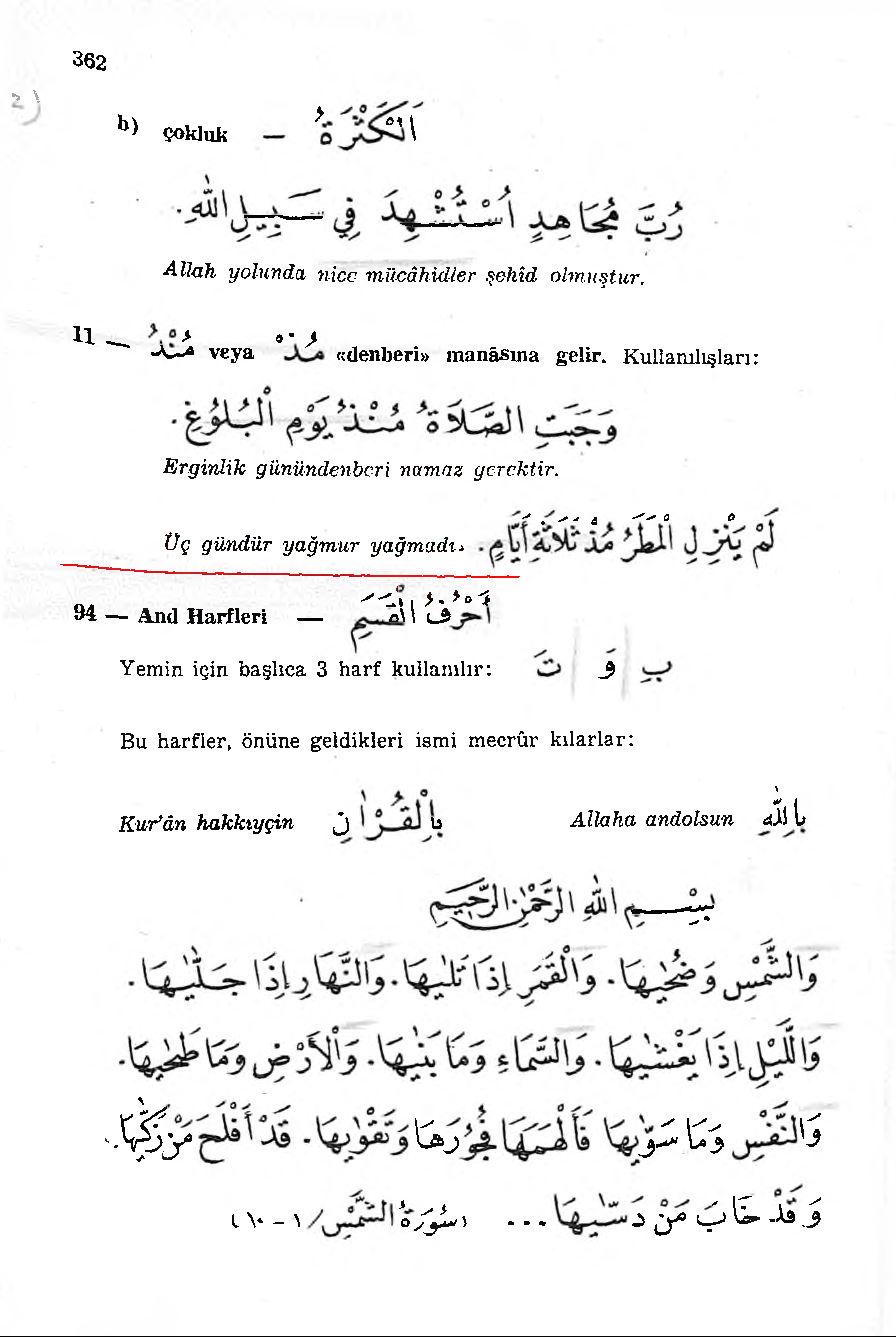 362
2)
b) çokluk — اَلْكَثْرَةُ
رُبَّ مُجَاهِدٍ اُسْتُشْهِدَ فِي سَبِيلِ اللهِ.
Allah yolunda nice mücâhidler şehîd olmuştur.
11 — مُنْذُ veya مُذْ «denberi» manâsına gelir. Kullanılışları:
وَجَبَتِ الصَّلَاةُ مُنْذُ يَوْمِ الْبُلُوغِ.
Erginlik günündenberi namaz gerektir.
Üç gündür yağmur yağmadı. لَمْ يَنْزِلِ الْمَطَرُ مُذْ ثَلَاثَةِ أَيَّامٍ.
94 — And Harfleri — أَحْرُفُ الْقَسَمِ
Yemin için başlıca 3 harf kullanılır: بِ وَ تَ
Bu harfler, önüne geldikleri ismi mecrûr kılarlar:
Kur'ân hakkıyçin بِالْقُرْاٰنِ Allaha andolsun بِاللّٰهِ
بِسْمِ اللهِ الرَّحْمٰنِ الرَّحِيمِ
وَالشَّمْسِ وَضُحٰيهَا. وَالْقَمَرِ إِذَا تَلٰيهَا. وَالنَّهَارِ إِذَا جَلّٰيهَا.
وَالَّيْلِ إِذَا يَغْشٰيهَا. وَالسَّمَاءِ وَمَا بَنٰيهَا. وَالْأَرْضِ وَمَا طَحٰيهَا.
وَالنَّفْسِ وَمَا سَوّٰيهَا فَأَلْهَمَهَا فُجُورَهَا وَتَقْوٰيهَا. قَدْ أَفْلَحَ مَنْ زَكّٰيهَا.
وَقَدْ خَابَ مَنْ دَسّٰيهَا ... (سُورَةُ الشَّمْسِ/١ - ١٠)